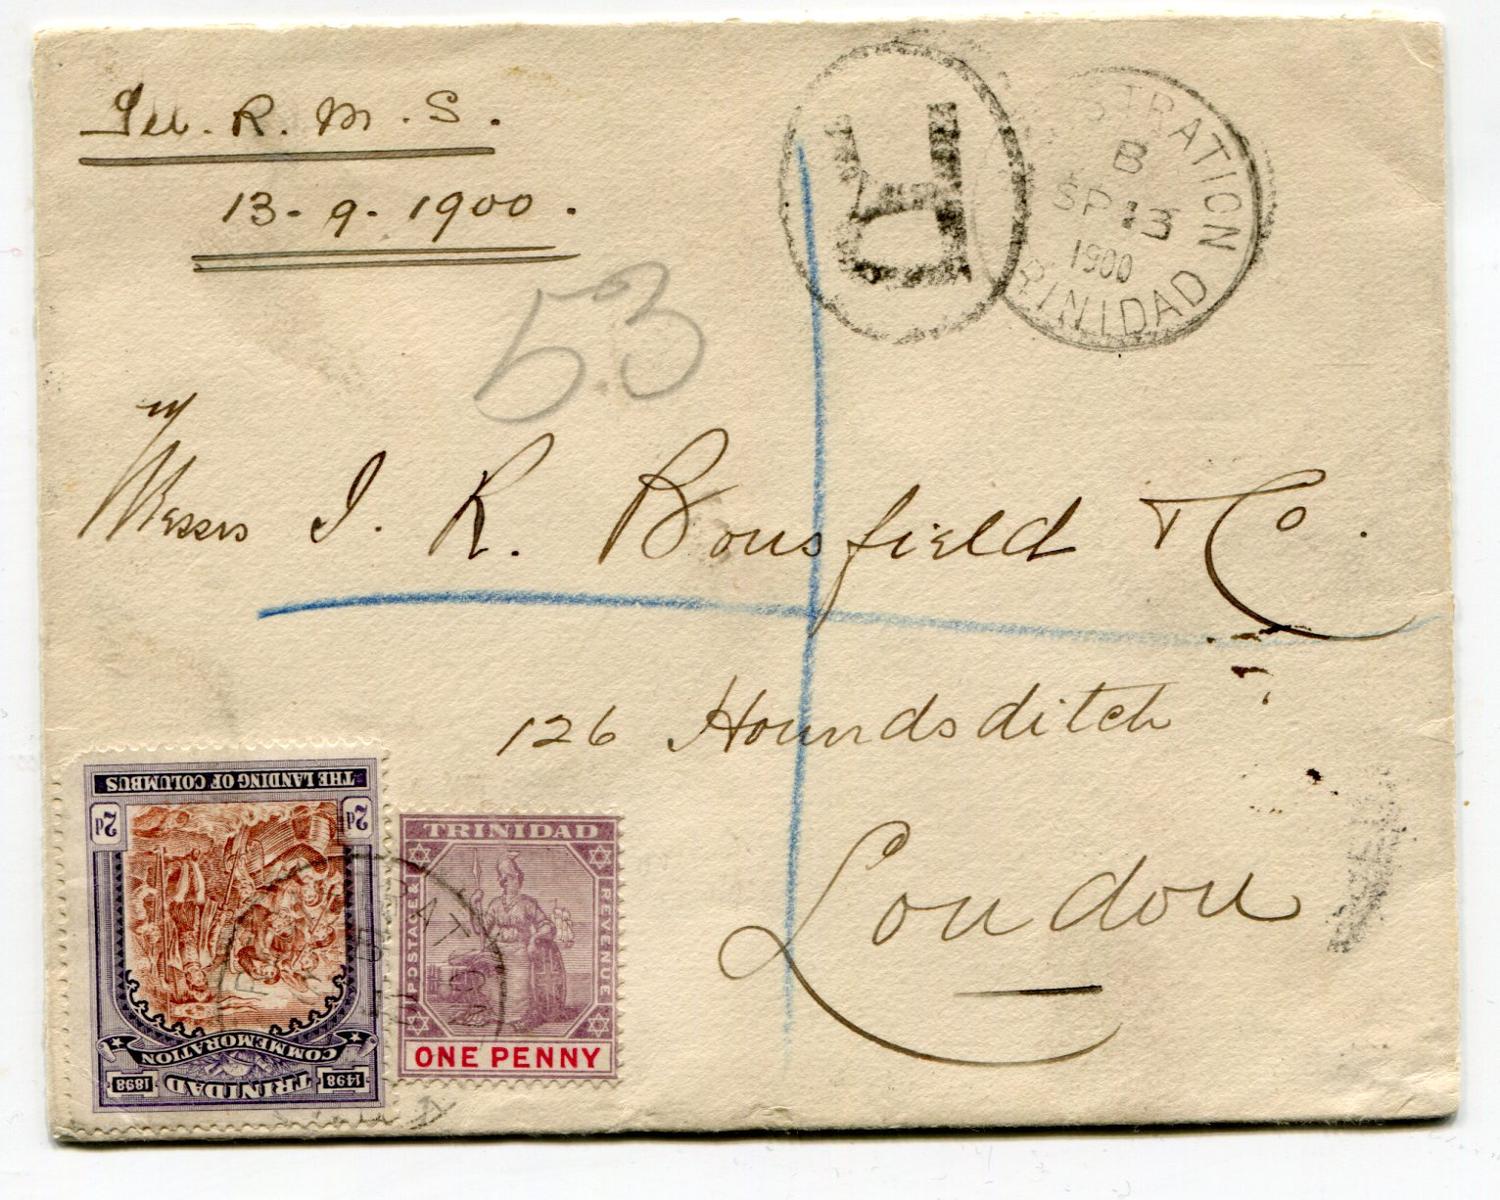 R. M. S.
13-9-1900.
53
R
STRATION
B
SP 13
1900
TRINIDAD
Messrs J. R. Bousfield & Co.
126 Houndsditch
London
THE LANDING OF COLUMBUS
2d 2d
COMMEMORATION
1498 TRINIDAD 1898
TRINIDAD
POSTAGE & REVENUE
ONE PENNY